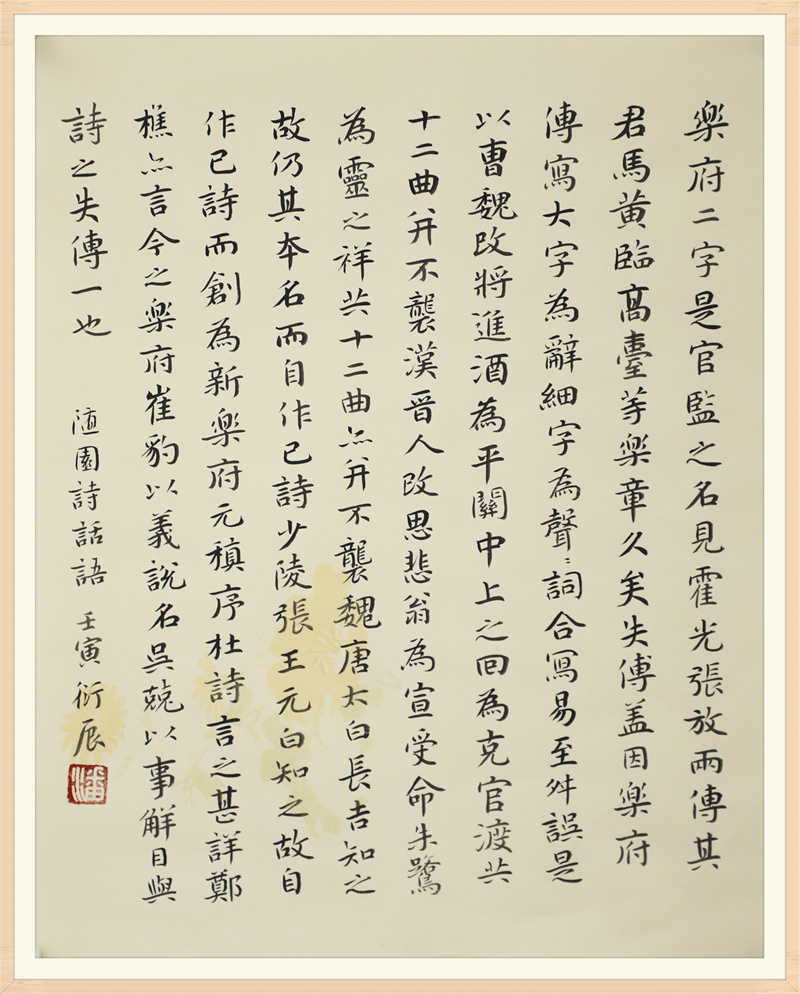 樂府二字是官監之名見霍光張放兩傳其
君馬黃臨高臺等樂章久矣失傳蓋因樂府
傳寫大字為辭細字為聲々詞合寫易至舛誤是
以曹魏改將進酒為平關中上之回為克官渡共
十二曲并不襲漢晉人改思悲翁為宣受命朱鷺
為靈之祥共十二曲亦并不襲魏唐太白長吉知之
故仍其本名而自作己詩少陵張王元白知之故自
作己詩而創為新樂府元稹序杜詩言之甚詳鄭
樵亦言今之樂府崔豹以義說名吳兢以事解目與
詩之失傳一也
随園詩話語
壬寅 衍辰
潘